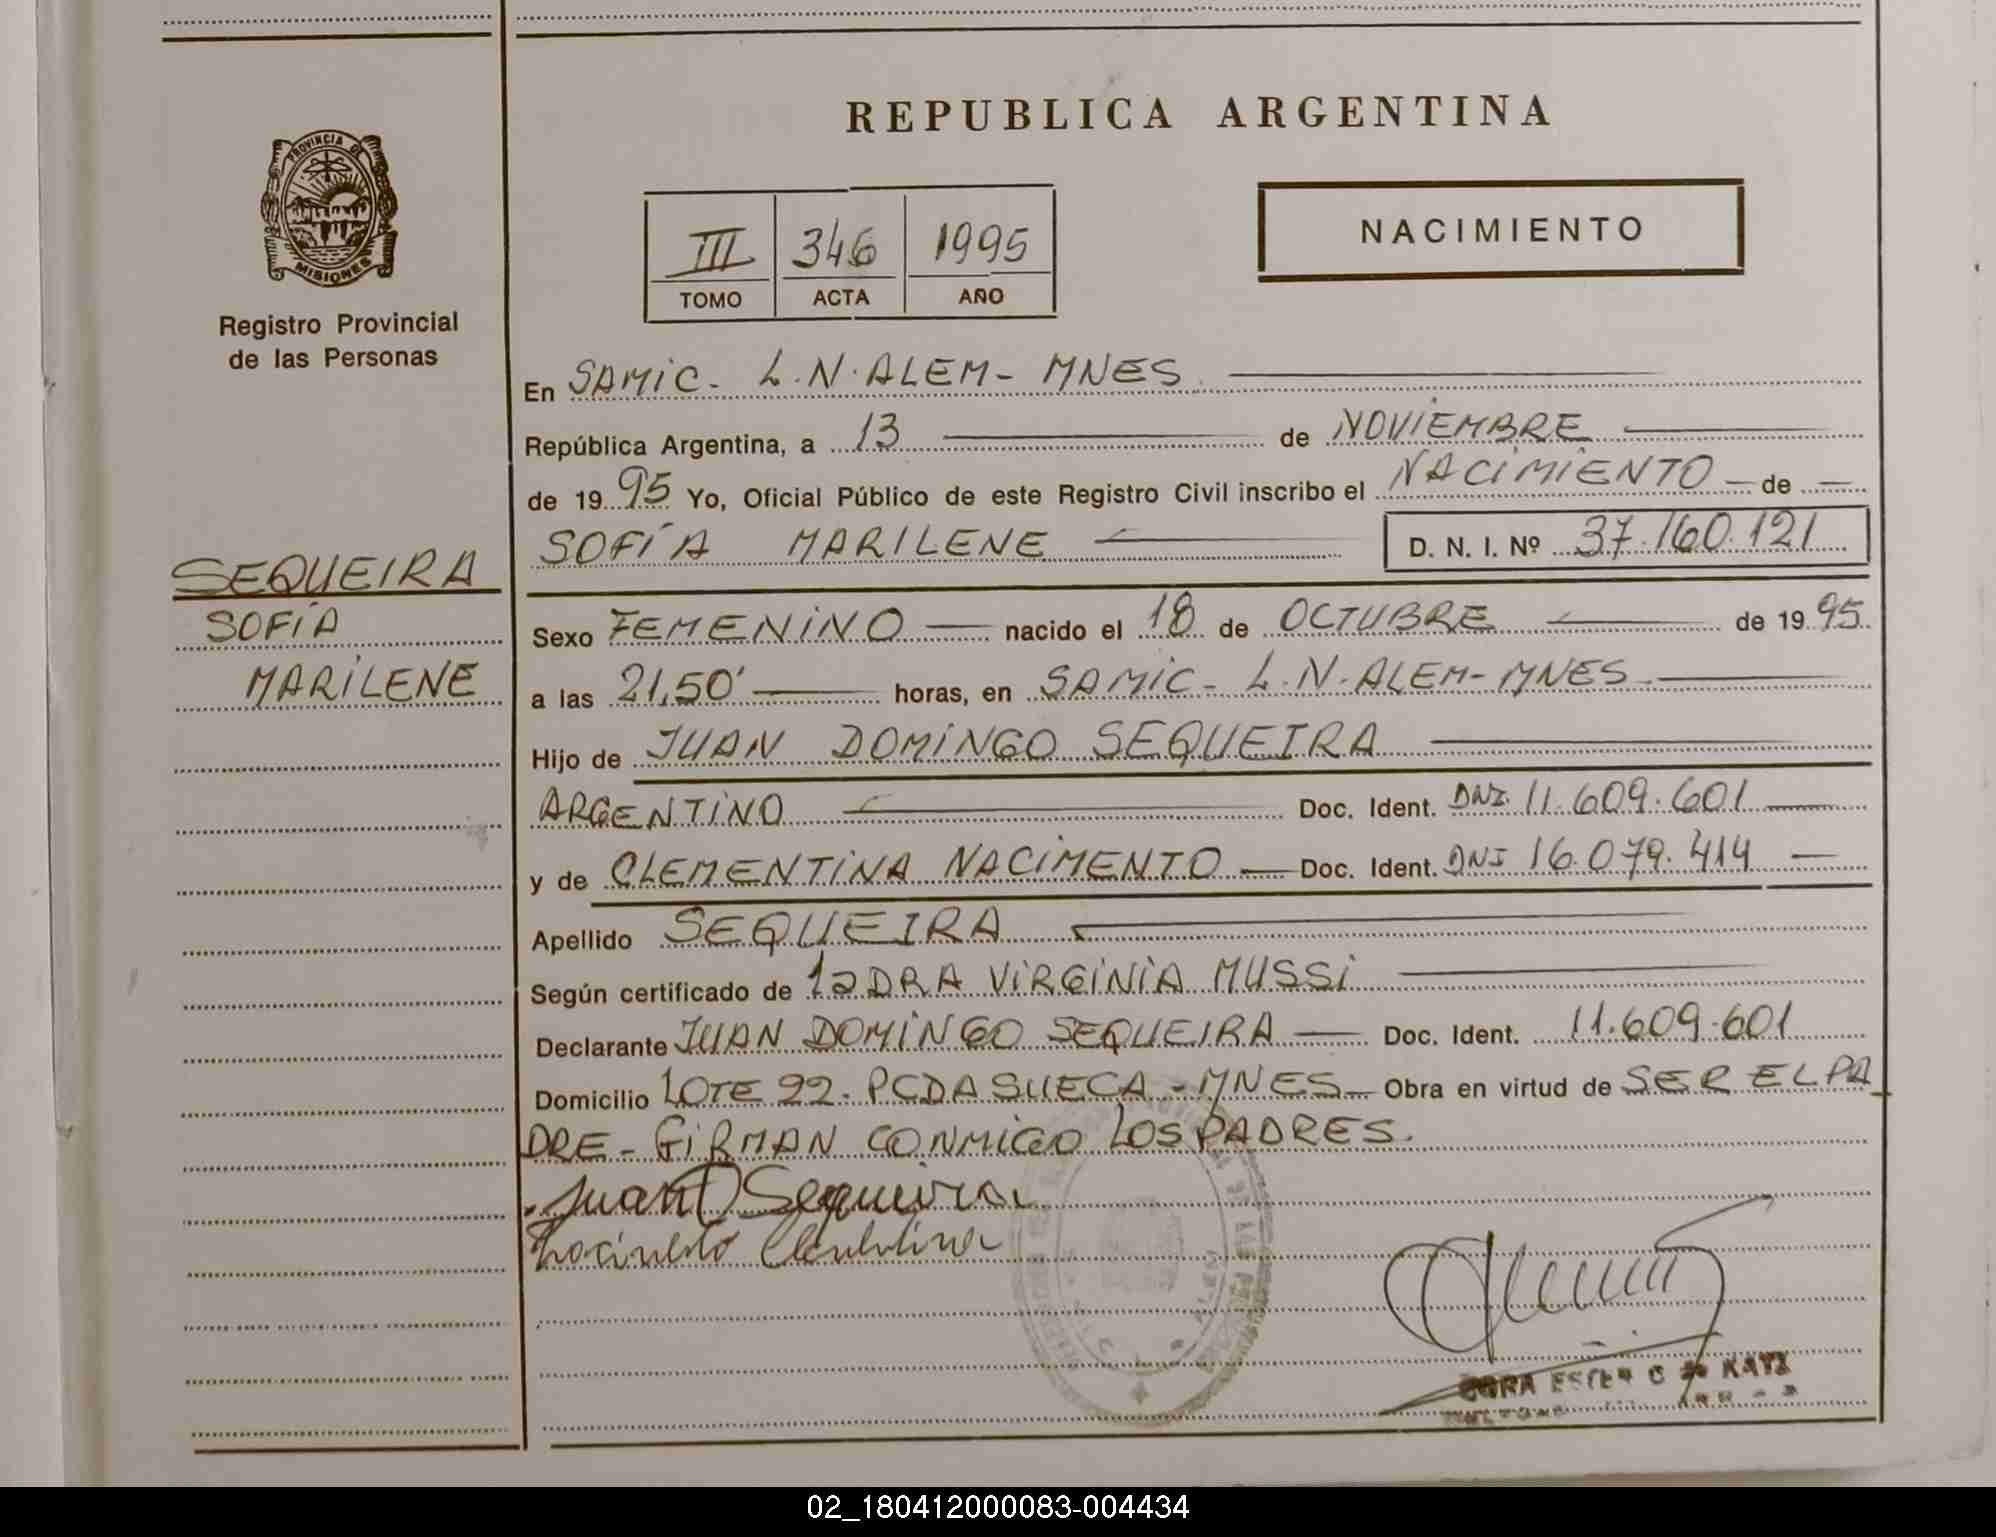 PROVINCIA DE
MISIONES
Registro Provincial
de las Personas
SEQUEIRA
SOFÍA
MARILENE
REPUBLICA ARGENTINA
III 346 1995
TOMO ACTA AÑO
NACIMIENTO
En SAMIC - L.N.ALEM - MNES
República Argentina, a 13 de NOVIEMBRE
de 1995 Yo, Oficial Público de este Registro Civil inscribo el NACIMIENTO de
SOFÍA MARILENE D. N. I. Nº 37.160.121
Sexo FEMENINO nacido el 18 de OCTUBRE de 1995
a las 21,50' horas, en SAMIC - L.N.ALEM - MNES
Hijo de JUAN DOMINGO SEQUEIRA
ARGENTINO Doc. Ident. DNI. 11.609.601
y de CLEMENTINA NACIMENTO Doc. Ident. DNI 16.079.414
Apellido SEQUEIRA
Según certificado de la DRA VIRGINIA MUSSI
Declarante JUAN DOMINGO SEQUEIRA Doc. Ident. 11.609.601
Domicilio LOTE 22 - PCDA SUECA - MNES Obra en virtud de SER EL PA
DRE - GIRMAN CONMIGO LOS PADRES.
Juan D Sequeira
KATZ
02_180412000083-004434